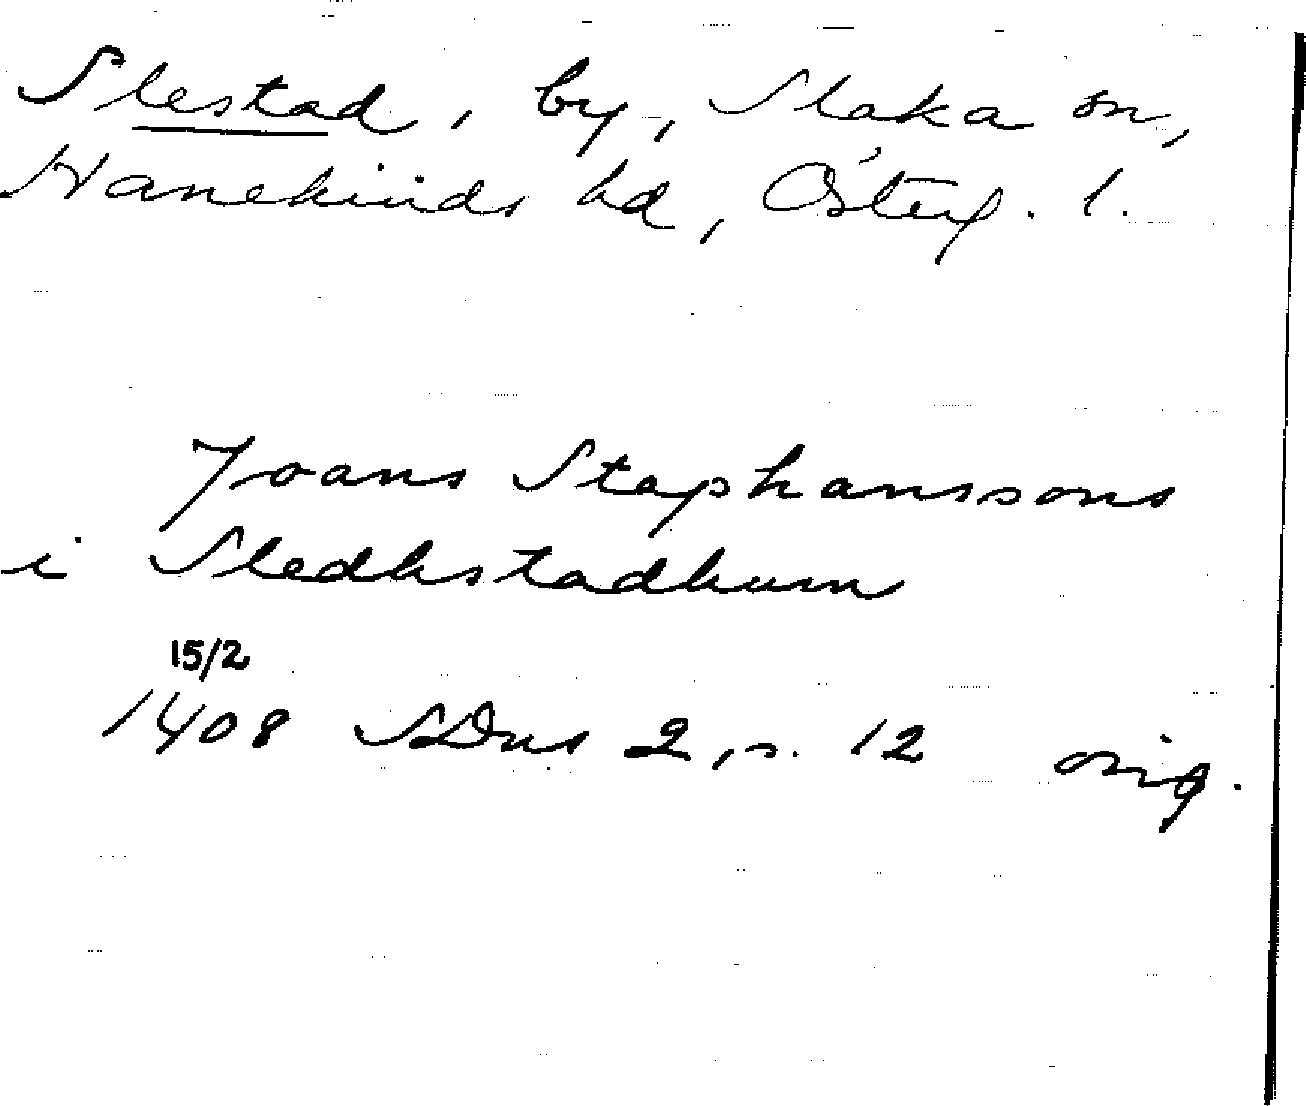 Slestad, by, Slaka sn,
Hanekinds hd, Österg. l.
Joans Staphanssons
i Sledhstadhum
15/2
1408 SDns 2, s. 12 orig.